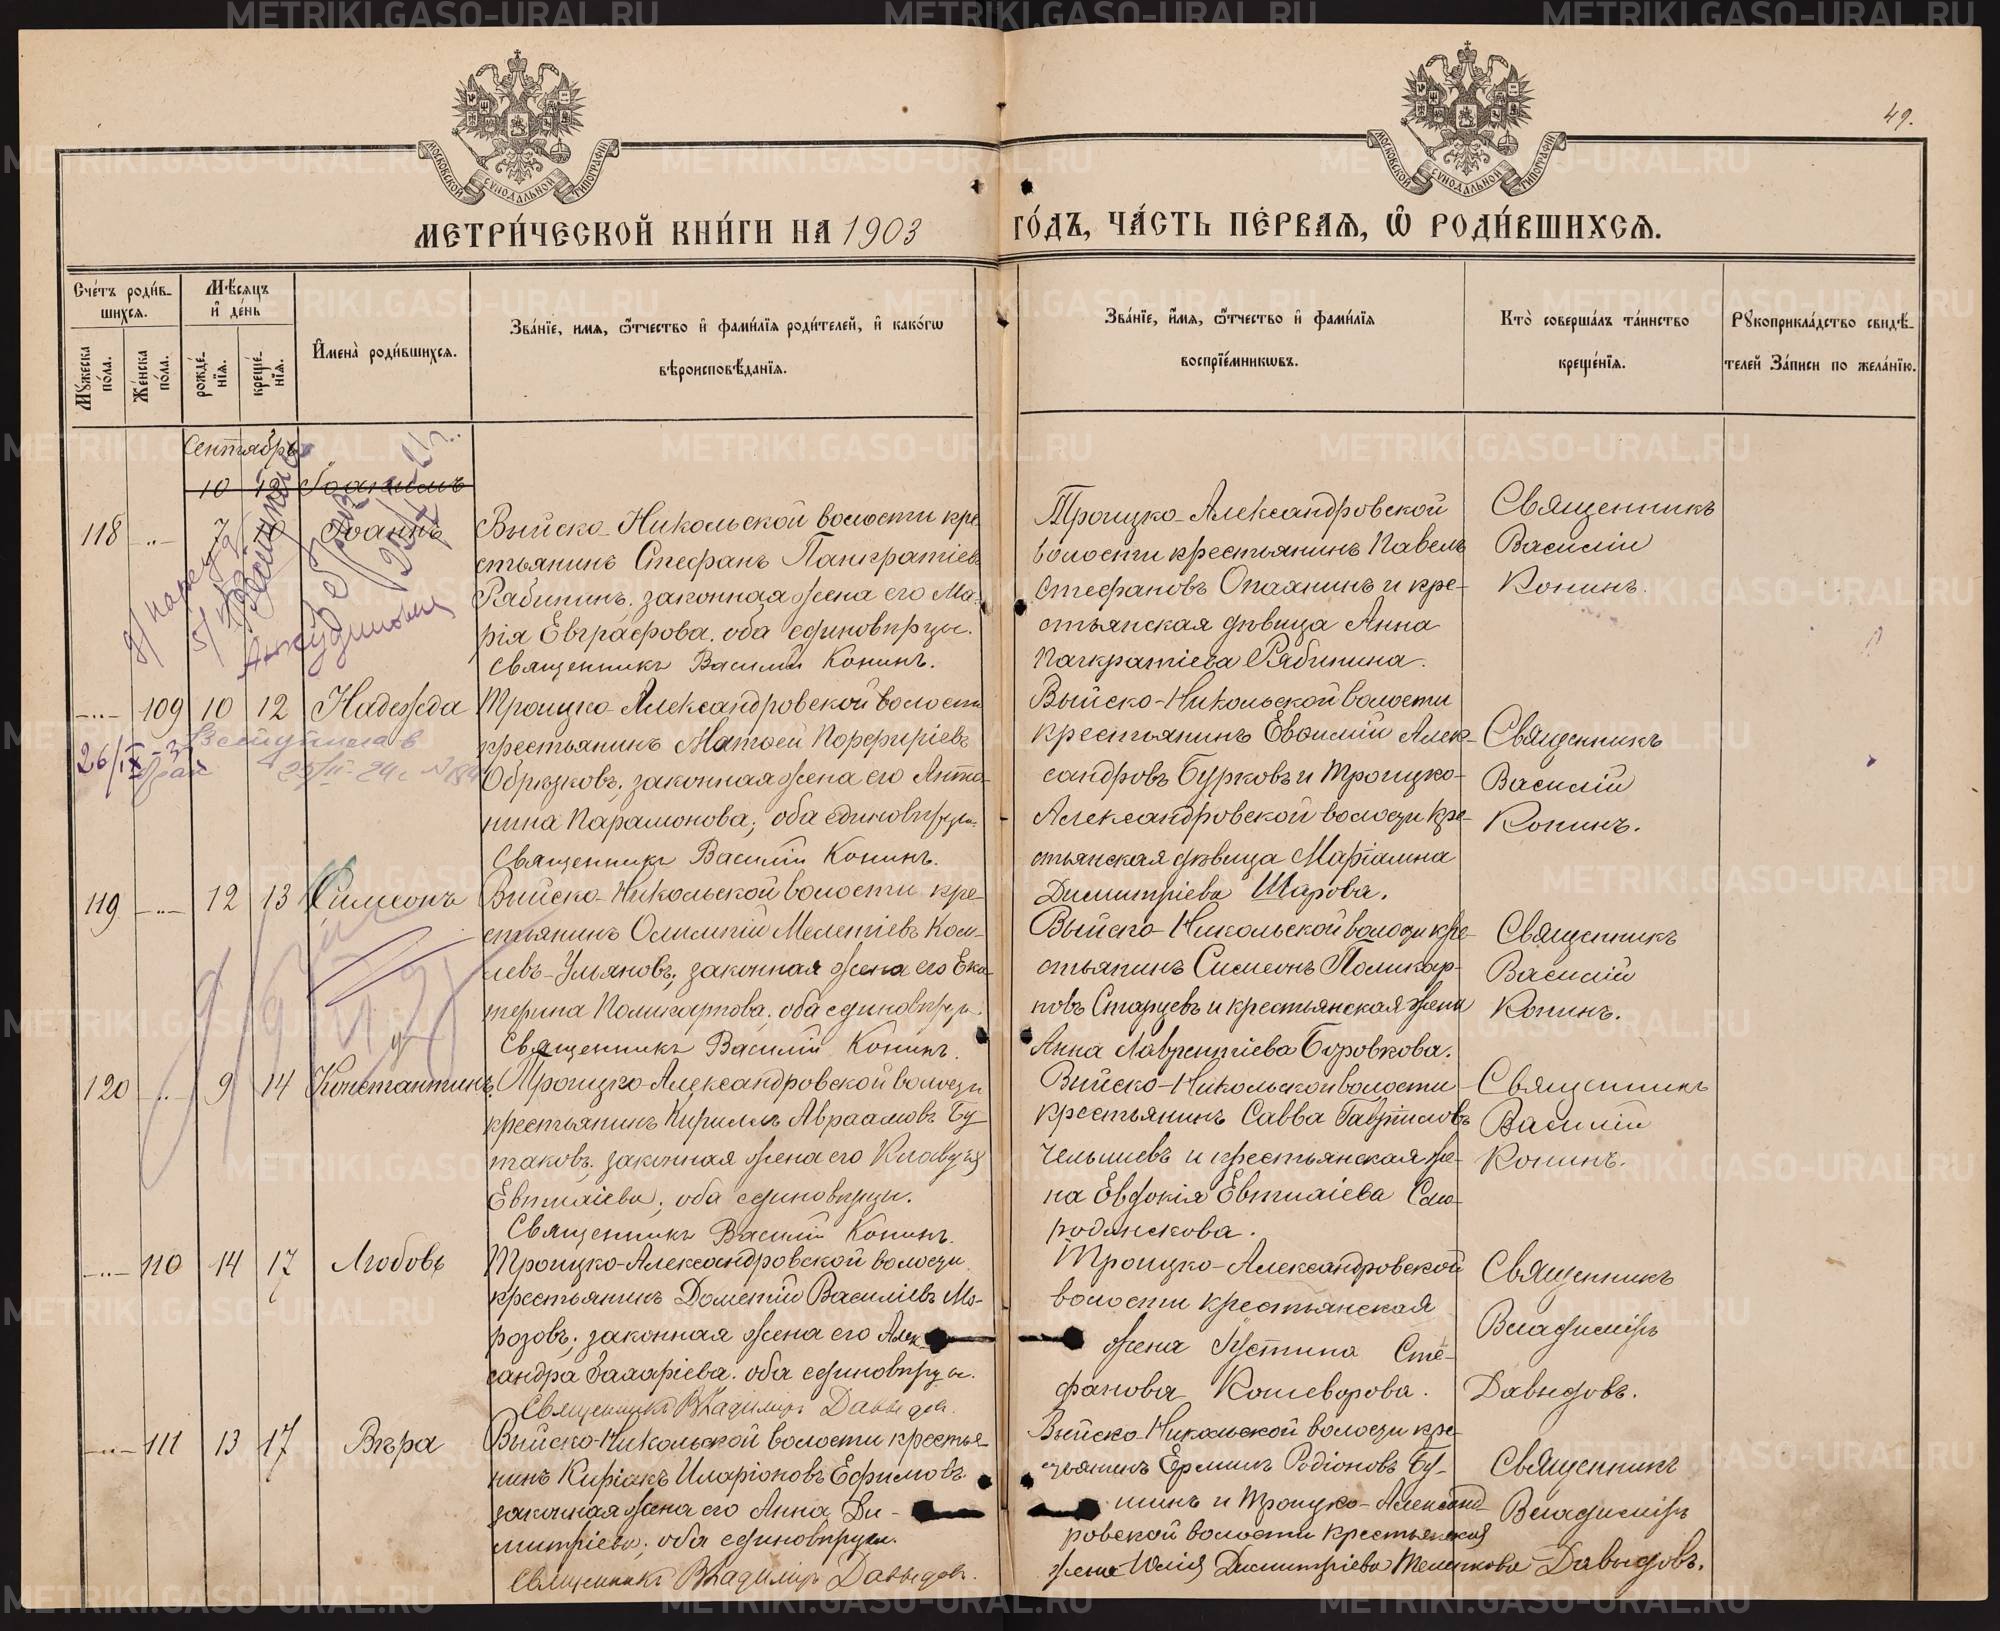 49.
МОСКОВСКОЙ СѴНОДАЛЬНОЙ ТИПОГРАФІИ
МОСКОВСКОЙ СѴНОДАЛЬНОЙ ТИПОГРАФІИ
МЕТРИ́ЧЕСКОЙ КНИ́ГИ НА 1903 ГО́ДЪ, ЧА́СТЬ ПЕ́РВАѦ, Ѽ РОДИ́ВШИХСѦ.
Сче́тъ роди́в-
шихсѧ.
Мꙋжеска по́ла.
Же́нска по́ла.
Мѣ́сѧцъ
и҆ де́нь
рожде́-
нїѧ.
креще́-
нїѧ.
И҆мена̀ роди́вшихсѧ.
Зва́нїе, имѧ, ѻ҆́тчество и҆ фами́лїѧ роди́телей, и҆ како́гѡ
вѣроисповѣ́данїѧ.
Зва́нїе, и҆́мѧ, ѻ҆́тчество и҆ фами́лїѧ
воспрїе́мникѡвъ.
Кто̀ соверша́лъ та́инство
креще́нїѧ.
Рꙋкоприкла́дство свидѣ́-
телей За́писи по жела́нїю.
Сентябрь
10 12
118 -"- 7 Іоаннъ
Выйско-Никольской волости кре
стьянинъ Стефанъ Панкратіевъ
Рябининъ, законная жена его Ма-
рія Евграфова, оба единовѣрцы.
Священникъ Василій Конинъ.
Троицко-Александровской
волости крестьянинъ Павелъ
Стефановъ Опаянинъ и кре-
стьянская дѣвица Анна
Панкратіева Рябинина.
Священникъ
Василій
Конинъ.
-"- 109 10 12 Надежда
Троицко-Александровской волости
крестьянинъ Матѳей Порфиріевъ
Обрѣзковъ, законная жена его Анто-
нина Парамонова, оба единовѣрцы.
Священникъ Василій Конинъ.
Выйско-Никольской волости
крестьянинъ Евѳимій Алек-
сандровъ Бурковъ и Троицко-
Александровской волости кре-
стьянская дѣвица Маріамна
Димитріева Шарова.
Священникъ
Василій
Конинъ.
26/IX
119 -"- 12 13 Симеонъ
Выйско-Никольской волости кре-
стьянинъ Олимпій Мелетіевъ Кош-
левъ-Ульяновъ, законная жена его Ека-
терина Поликарпова, оба единовѣрцы.
Священникъ Василій Конинъ.
Выйско-Никольской волости кре-
стьянинъ Симеонъ Поликар-
повъ Старцевъ и крестьянская жена
Анна Лаврентіева Боровкова.
Священникъ
Василій
Конинъ.
120 -"- 9 14 Константинъ
Троицко-Александровской волости
крестьянинъ Кириллъ Авраамовъ Бу-
таковъ, законная жена его Клавдія
Евтихіева, оба единовѣрцы.
Священникъ Василій Конинъ.
Выйско-Никольской волости
крестьянинъ Савва Гавріиловъ
Челышевъ и крестьянская же-
на Евдокія Евтихіева Смо-
родинскова.
Священникъ
Василій
Конинъ.
-"- 110 14 17 Любовь
Троицко-Александровской волости
крестьянинъ Дометій Василіевъ Мо-
розовъ, законная жена его Алек-
сандра Захаріева, оба единовѣрцы.
Священникъ Владимиръ Давыдовъ.
Троицко-Александровской
волости крестьянская
жена Іустина Сте-
фанова Кошеворова.
Священникъ
Владиміръ
Давыдовъ.
-"- 111 13 17 Вѣра
Выйско-Никольской волости крестья-
нинъ Киріакъ Иларіоновъ Ефимовъ
законная жена его Анна Ди-
митріева, оба единовѣрцы.
Священникъ Владимиръ Давыдовъ.
Выйско-Никольской волости кре-
стьянинъ Ермилъ Родіоновъ Бу-
шинъ и Троицко-Александ
ровской волости крестьянская
жена Юлія Димитріева Теленкова
Священникъ
Владиміръ
Давыдовъ.
METRIKI.GASO-URAL.RU